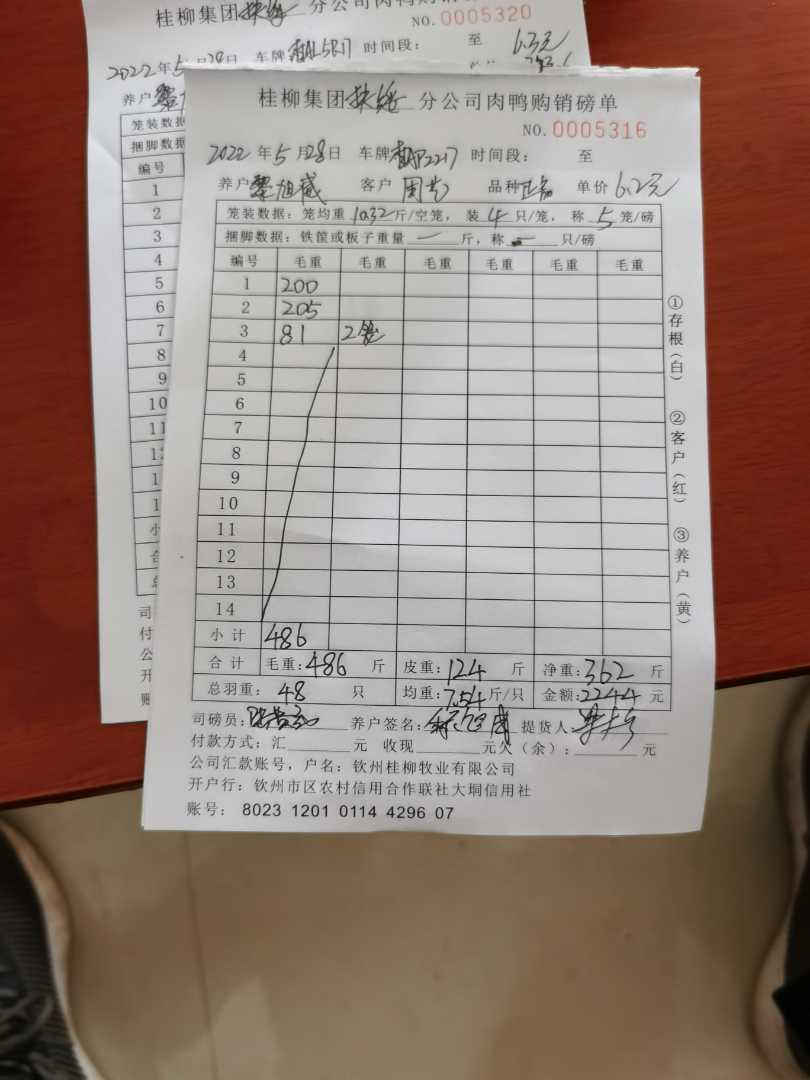 桂柳集团 分公司肉鸭购
NO.0005320
2022年5月28日 车牌 时间段： 至 6.3元
养户
笼装数据
捆脚数据
编号
1
2
3
4
5
6
7
8
9
10
11
桂柳集团 分公司肉鸭购销磅单
NO.0005316
2022年5月28日 车牌 2217 时间段： 至
养户 黎旭威 客户 周 品种 单价 6.2元
笼装数据：笼均重 10.32 斤/空笼，装 4 只/笼，称 5 笼/磅
捆脚数据：铁筐或板子重量 — 斤，称 — 只/磅
编号 毛重 毛重 毛重 毛重 毛重 毛重
1 200
2 205
3 81 2笼
4
5
6
7
8
9
10
11
12
13
14
小计 486
合计 毛重：486 斤 皮重：124 斤 净重：362 斤
总羽重： 48 只 均重：7.54斤/只 金额：2244元
司磅员： 养户签名： 提货人
付款方式：汇 元 收现 元欠（余）： 元
公司汇款账号，户名：钦州桂柳牧业有限公司
开户行：钦州市区农村信用合作联社大垌信用社
账号： 8023 1201 0114 4296 07
①存根（白）
②客户（红）
③养户（黄）